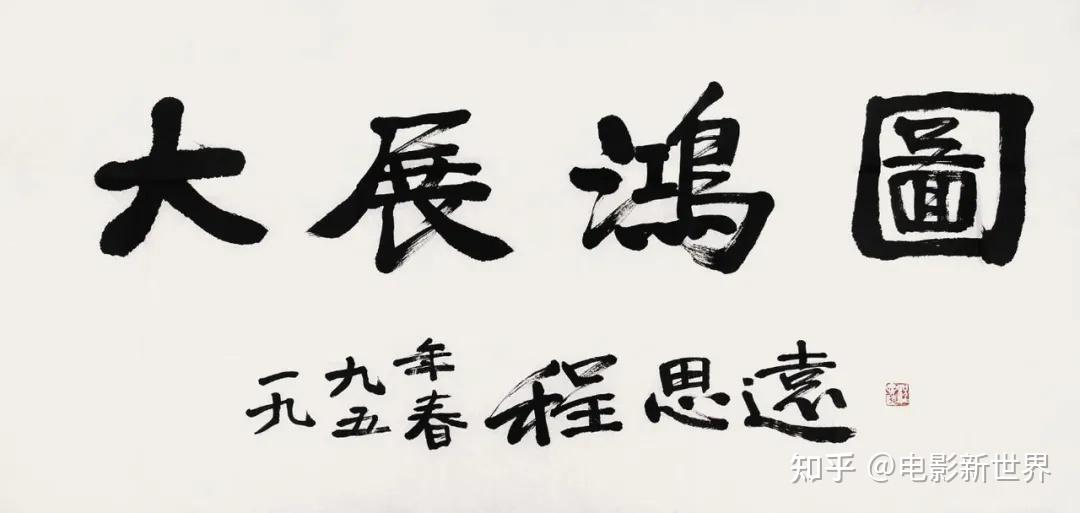 大展鴻圖
一九九五年春 程思遠
知乎 @电影新世界